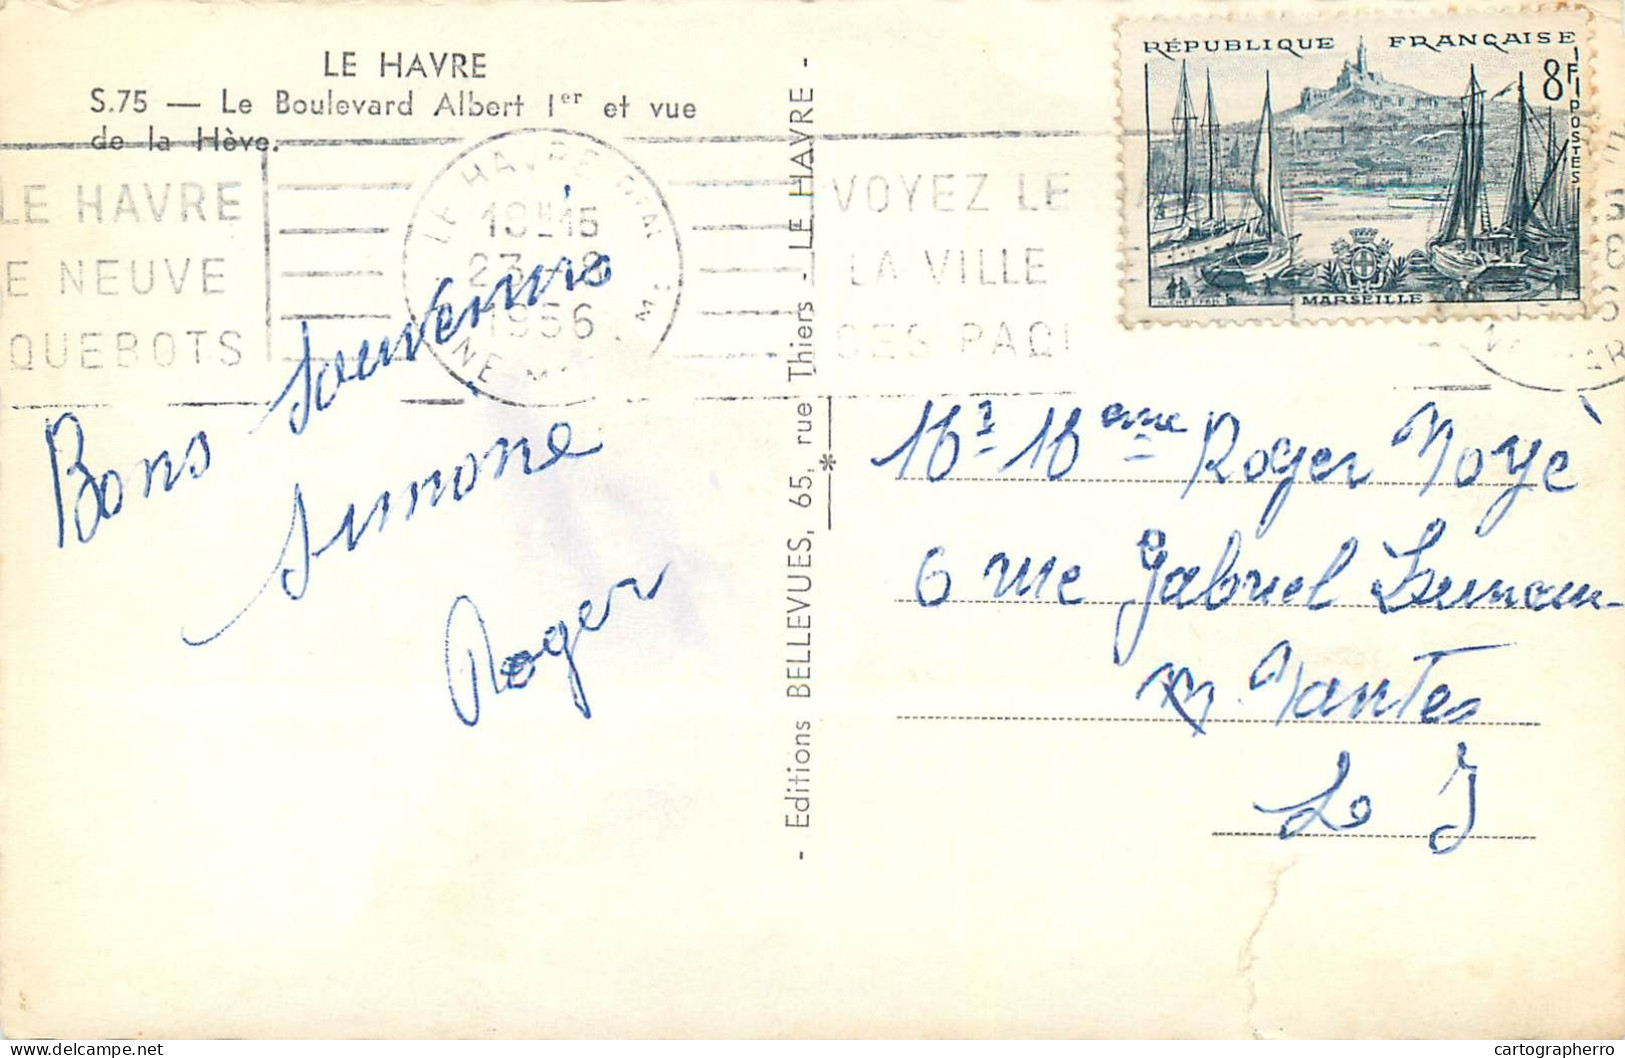 LE HAVRE
S.75 — Le Boulevard Albert Ier et vue
de la Hève.
LE HAVRE
E NEUVE
QUEBOTS
LE HAVRE
1956
VOYEZ LE
LA VILLE
DES PAQ
RÉPUBLIQUE FRANÇAISE
8F
POSTES
MARSEILLE
Bons Souvenirs
Simone
Roger
- Editions BELLEVUES, 65, rue Thiers - LE HAVRE -
*
Roger Noyé
6 rue Gabriel
Nantes
L I
cartographerro